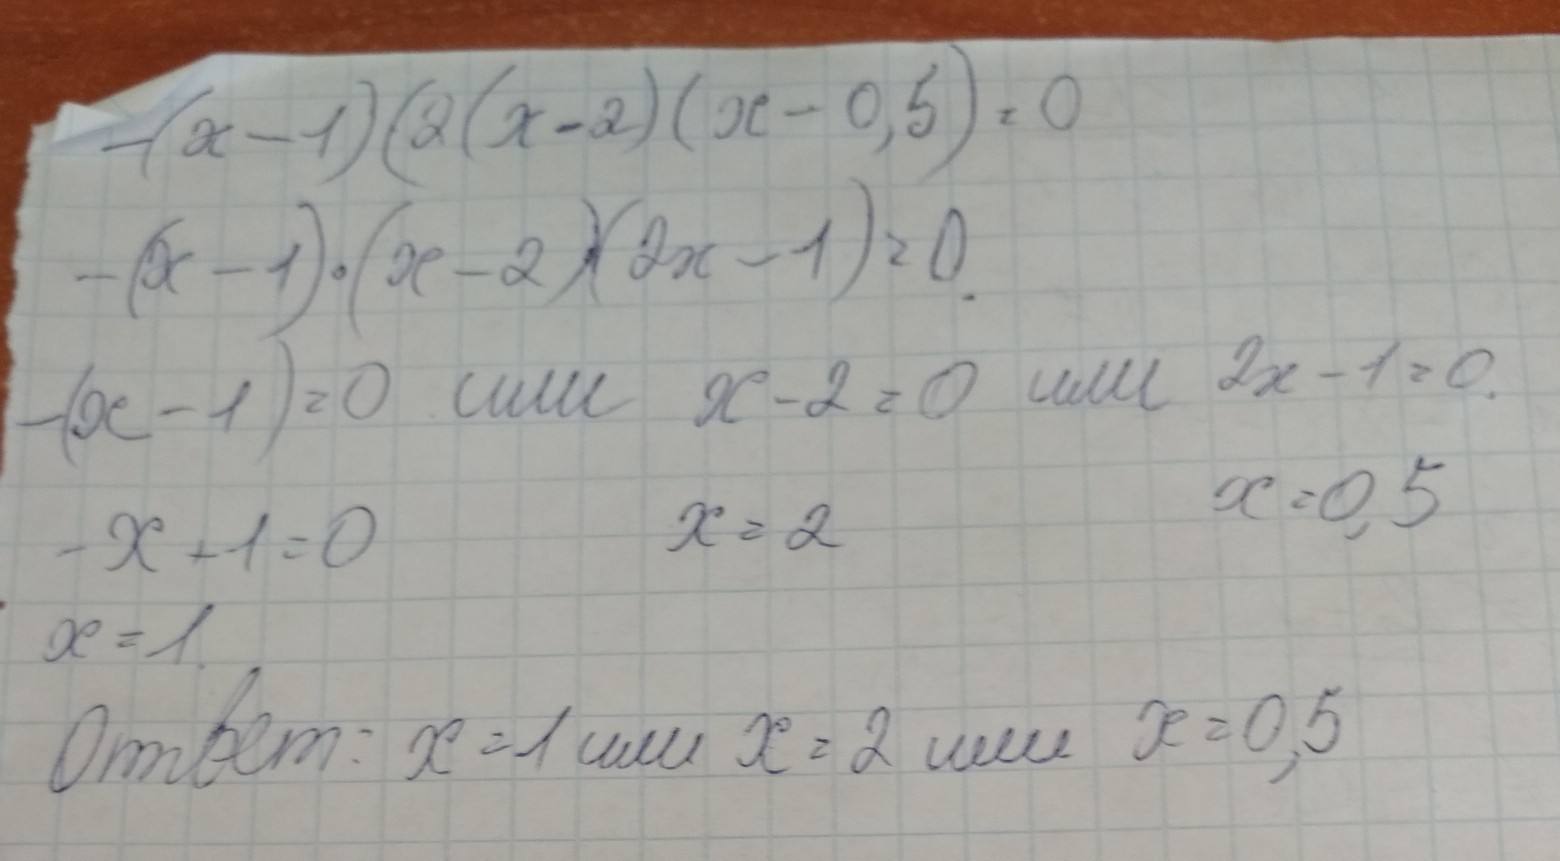 -(x-1)(2(x-2)(x-0,5)=0
-(x-1)·(x-2)(2x-1)=0.
-(x-1)=0 или x-2=0 или 2x-1=0.
-x+1=0 x=2 x=0,5
x=1.
Ответ: x=1 или x=2 или x=0,5